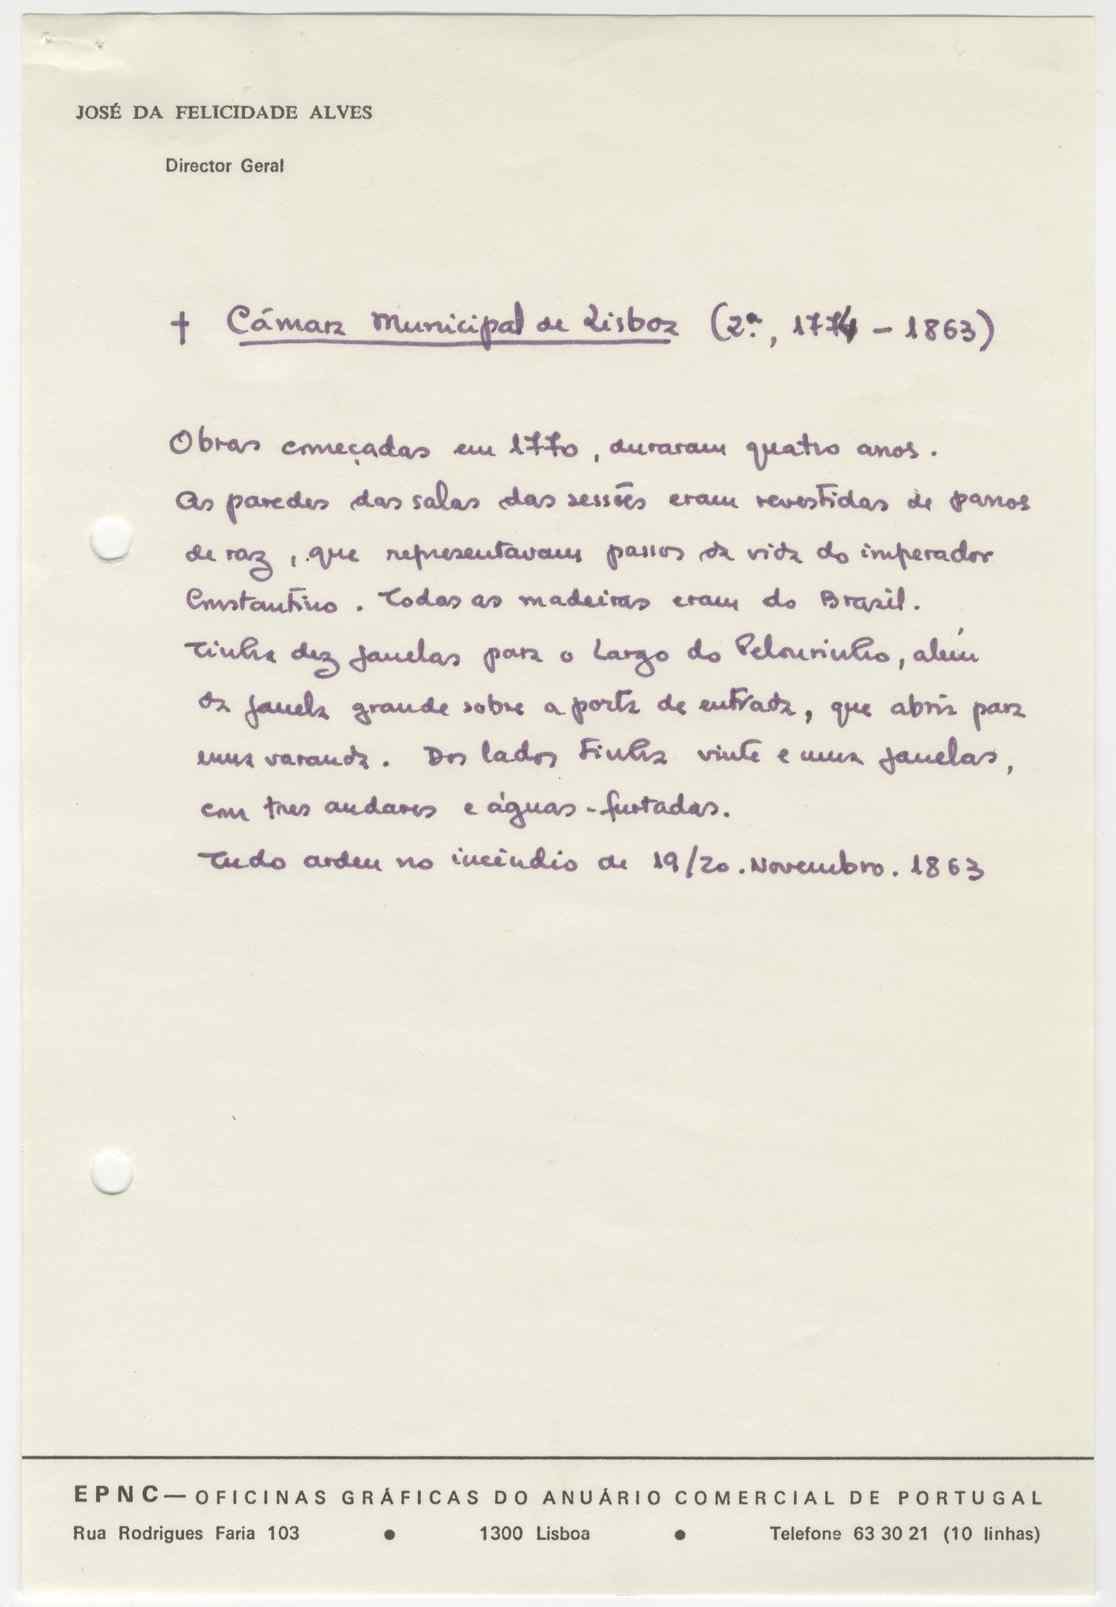 JOSÉ DA FELICIDADE ALVES
Director Geral
† Câmara Municipal de Lisboa (2.ª, 1774 - 1863)
Obras começadas em 1770, duraram quatro anos.
As paredes das salas das sessões eram revestidas de panos
de raz, que representavam passos da vida do imperador
Constantino. Todas as madeiras eram do Brasil.
Tinha dez janelas para o Largo do Pelourinho, além
da janela grande sobre a porta de entrada, que abria para
uma varanda. Dos lados tinha vinte e uma janelas,
com tres andares e águas-furtadas.
Tudo ardeu no incêndio de 19/20.Novembro.1863
EPNC—OFICINAS GRÁFICAS DO ANUÁRIO COMERCIAL DE PORTUGAL
Rua Rodrigues Faria 103 ● 1300 Lisboa ● Telefone 63 30 21 (10 linhas)